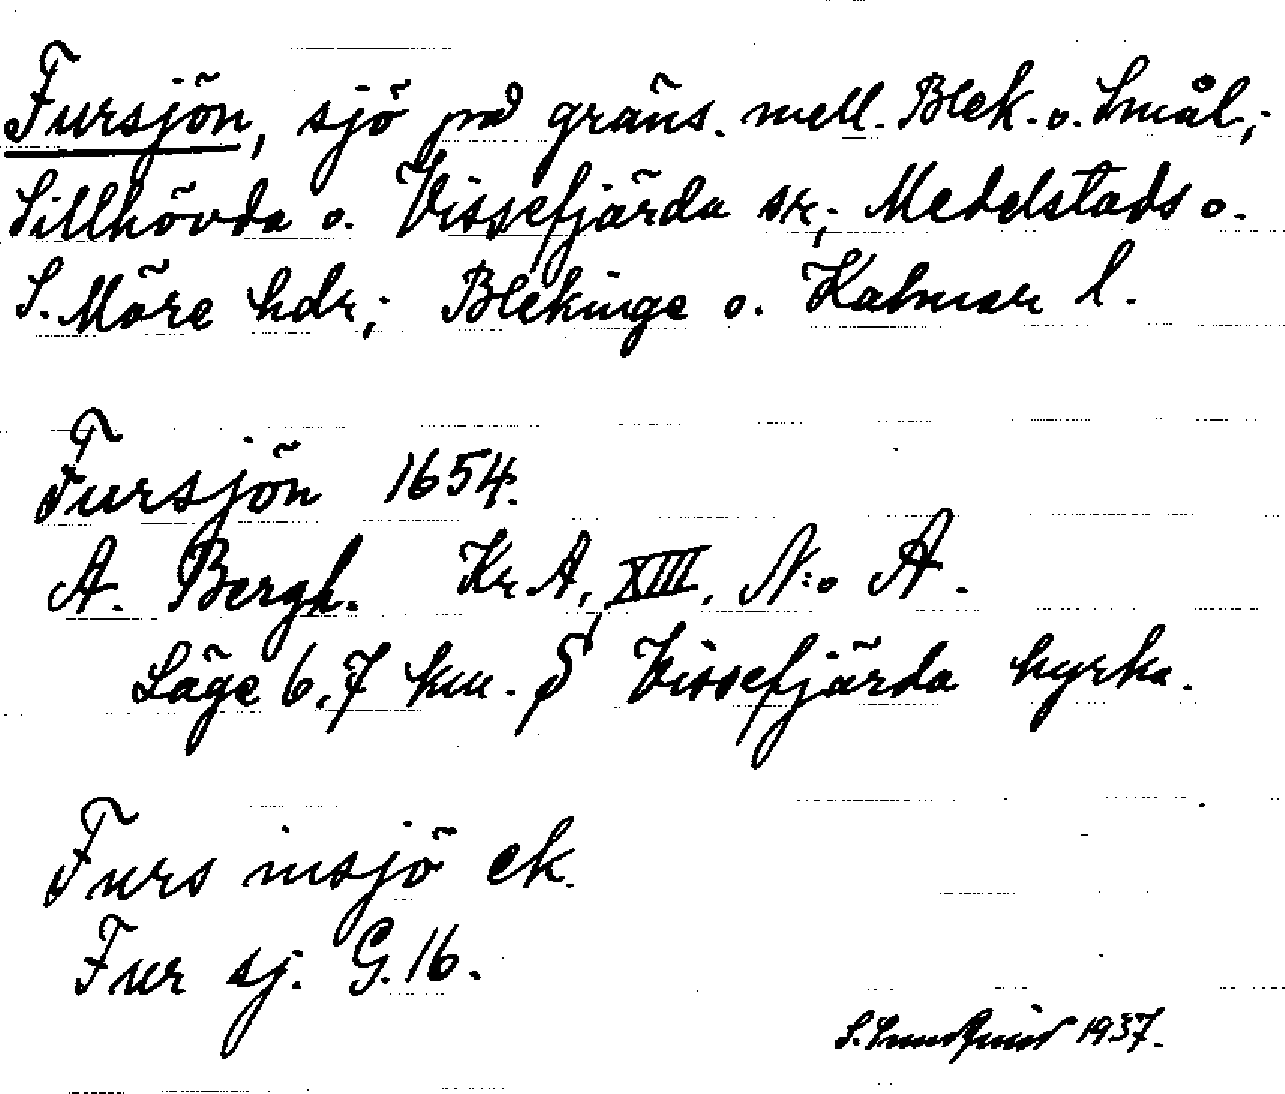 Fursjön, sjö på gräns. mell. Blek. o. Smål.;
Sillhövda o. Vissefjärda sn; Medelstads o.
S. Möre hdr; Blekinge o. Kalmar l.
Fursjön 1654.
A. Bergh. Kr. A, XIII, N:o A.
Läge 6,7 km. S Vissefjärda kyrka.
Furs insjö ek.
Fur sj. G. 16.
S. 1937.